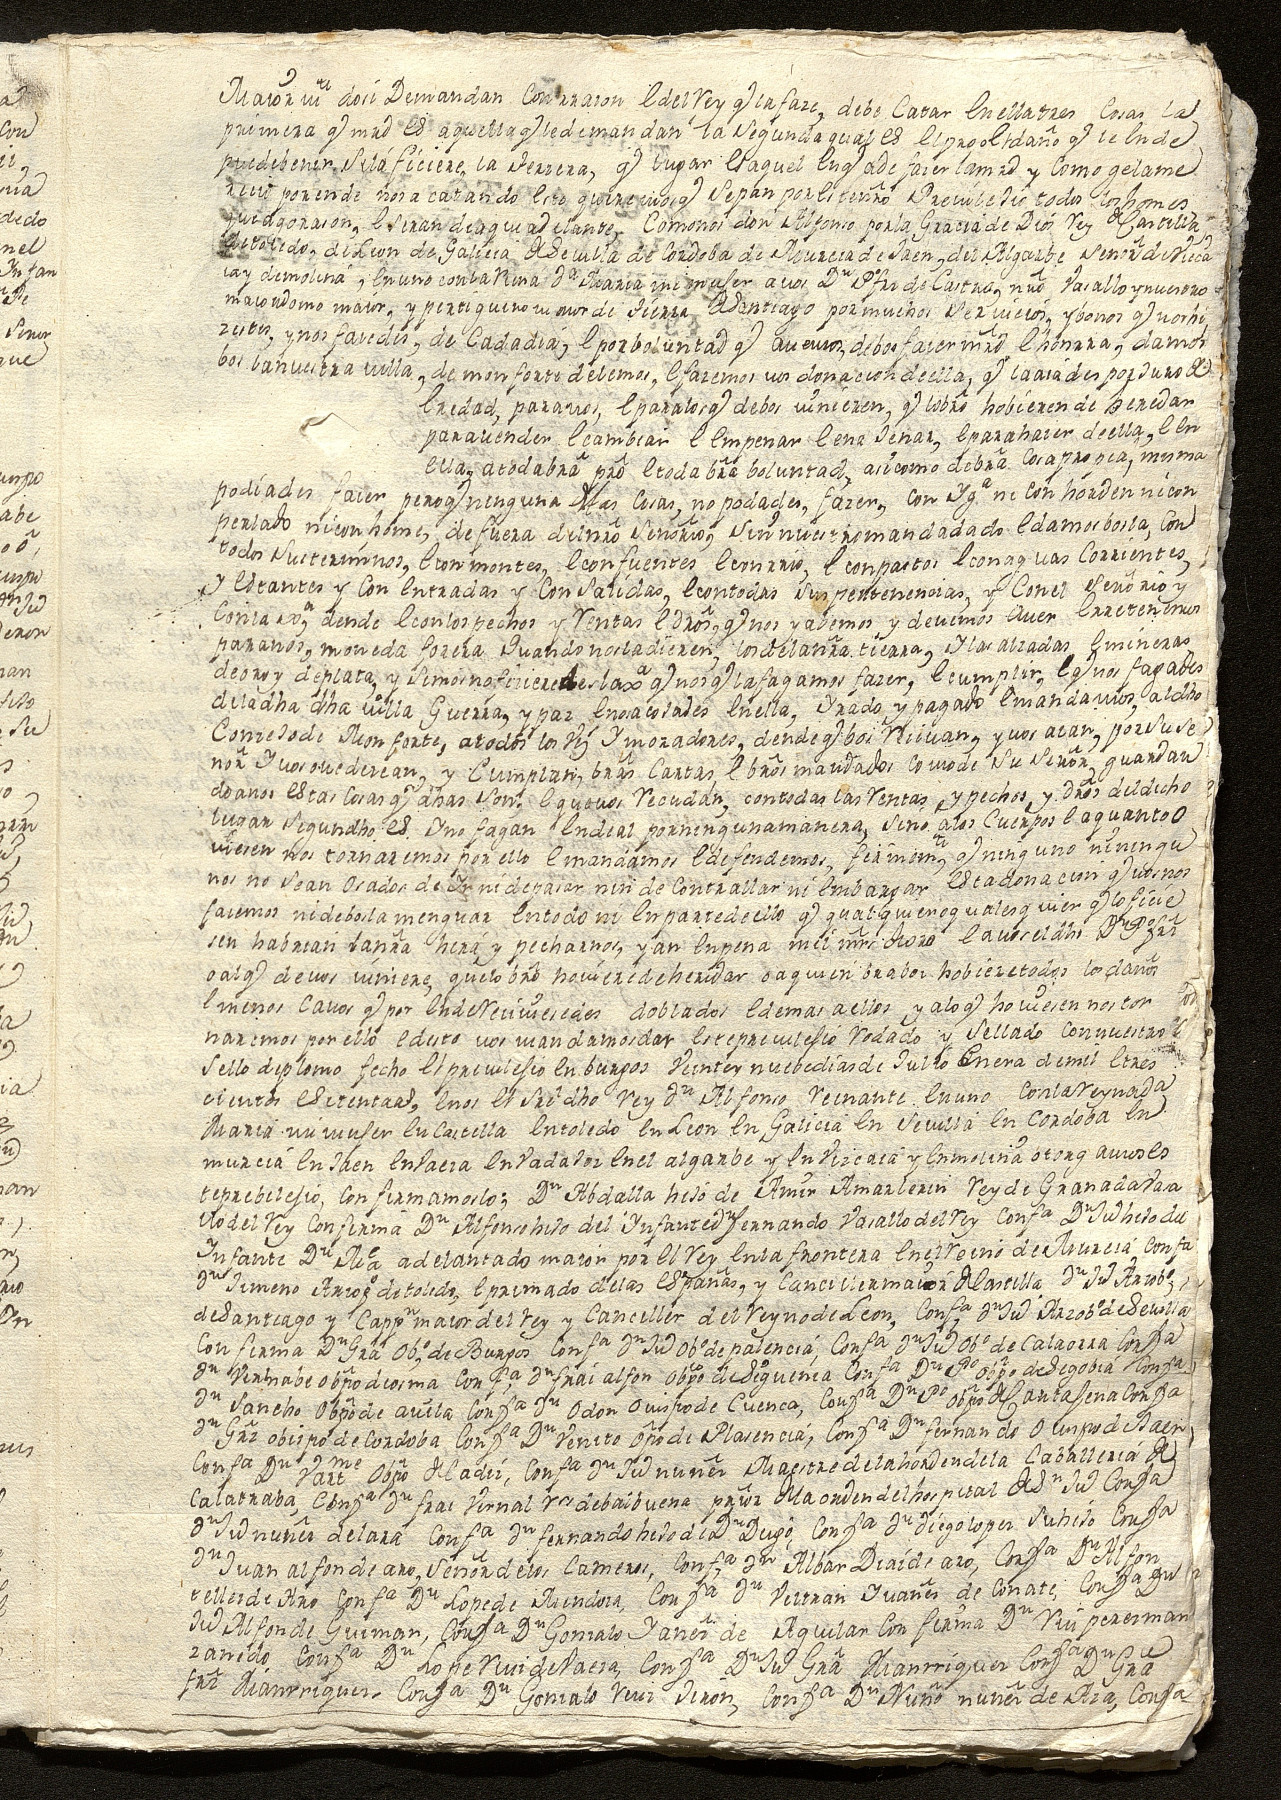 Maiorm.te dosi Demandan Con rraçon E del Rey q̃ la faze, debe Catar En ella tres Cosas, la
primera q̃ mrd Es aquella q̃ le demandan la Segunda qual Es El pro o El daño q̃ le Ende
puede benir, Si la ficiere, la terzera, q̃ lugar Es aquel En q̃ a de fazer la mrd y Como gelame
rece porende nos acatando Esto queremos q̃ Sepan por Este nrõ Previlejio todos los homes
que agora son, E Seran de aqui adelante, Como nos don Alfonso por la Gracia de Dios Rey de Castilla,
de toledo, de Leon de Galicia de Sevilla de Cordoba de Murcia de Jaen, del Algarbe Señor de Vizca
ia y de molina, En uno con la Reina Dª Maria mi muser a vos Dn Pº frz de Castro, nrõ Vasallo y nuestro
maiordomo maior, y pertiguero maior de tierra de Santiago por muchos Servicios, y bonos q̃ nos hi
zistes, y nos facedes, de Cada dia, E por boluntad q̃ auemos, de bos fazer mrd E honrra, damos
bos la nuestra villa, de monforte de lemos, E fazemos vos donacion de ella, q̃ la aiades por Juro de
Eredad, para vos, E para los q̃ de bos vinieren, q̃ lo brõ hobieren de heredar
para vender E cambiar E Empenar E enajenar, E para hazer de ella, E En
ella, a toda brã prõ E toda brã boluntad, asi como de brã Cosa propia, mesma
podiades fazer pero q̃ ninguna destas Cosas, no podades, fazer, con Ygª ni con hórden ni con
perlado ni con home, de fuera del nrõ Señorio, Sin nuestro mandadado E damos bos la, Con
todos Sus terminos, E con montes, E con fuentes E con rrios, E con pastos E con aguas Corrientes,
y Estantes y Con Entradas y Con Salidas, E con todas Sus pertenencias, y Con el Señorio y
Con la xª, dende E con los pechos y Rentas E drõs, q̃ nos y abemos y devemos Aver E rretenemos
para nos, moneda forera Quando nos la dieren, los de la nrã tierra, y las alzadas E mineras
de oro y de plata, y Si mos no ficieredes la xª q̃ nos q̃ la fagamos fazer, E cumplir, E q̃ nos fagades
de la dha dha villa Guerra, y paz E nos acojades En ella, Yrado y pagado E mandamos, al dho
Conzejo de Monforte, a todos los Vs.º Y moradores, dende q̃ bos Reciuan, y uos aian, por Su Se
ñor Y uos ouedezcan, y Cumplan, brãs Cartas E brõs mandados como de Su Señor, guardan
do a nos Estas Cosas q̃ dhas Son, E que vos Recudan, con todas las Rentas y pechos, y drõs del dicho
lugar Segun dho Es. Y no fagan Ende al por ninguna manera, Sino a los Cuerpos E a quanto o
viesen nos tornaremos por ello E mandamos E defendemos, firmem.te q̃ ninguno ni ningu
nos no Sean Osados de Yr ni de pasar, nin de Contrallar ni Embargar Esta donacion q̃ vos nos
facemos ni de bos la menguar En todo ni En parte de ello q̃ qual quier o quales quier q̃ lo ficie
sen habrian la nrã hira y pecharnos, yan En pena mil mrs de oro E a vos el dho Dn Pº frz
o al q̃ de vos viniere, que lo brõ hoviere de heredar o a quien bra boz hobiere todos los daños
E menos Cavos q̃ por Ende Reciuieredes doblados E demas a Ellos y a lo q̃ houiesen nos tor
naremos por ello E desto vos mandamos dar Este previlesio Rodado y Sellado con nuestro
Sello de plomo fecho El previlesio En burgos Veinte y nuebe dias de Jullio Enera de mil E tres
cientos E setenta, E nos El Sre.dho Rey Dn Alfonso Reinante En uno Con la Reyna Dª
Maria mi muser En Castella En toledo En Leon En Galicia En Sevilla En Cordoba En
murcia En Jaen En Baeza En Badajoz En el algarbe y En Vizcaia y En molina otorgamos Es
te prebilesio, Confirmamoslo; Dn Abdalla hijo de Amir Amarlezin Rey de Granada Vasa
llo del Rey Confirma Dn Alfonso hijo del Ynfante dn fernando Vasallo del Rey Confª Dn Jud hijo del
Ynfante Dn Ml adelantado maior por El Rey En la frontera En el Reino de Murcia Confª
Dn Jimeno Arzobº de toledo, E primado de las Españas, y Canciller maior de Castilla Dn Jud Arzobº,
de Santiago y Cappn maior del Rey y Canceller del Reyno de Leon, Confª, Dn Jud Arzobº de Sevilla
Confirma Dn Grã Obº de Burgos Confª Dn Jud Obº de palencia, Confª Dn Jud Obº de Calaorra Confª
Dn Vernabe obpõ de osma Confª, Dn frai alfon Obpõ de Siguenza Confª Dn Pº obpõ de Segobia Confª
Dn Sancho Obpõ de avila Confª Dn Odon Ouispo de Cuenca, Confª Dn Pº Obpõ de Cartasena Confª
Dn Gũz obispo de Cordoba Confª Dn Venito Opõ de Plasencia, Confª Dn fernando Ouispo de Jaen,
Confª Dn Vart.me Obpõ de Cadiz, Confª Dn Jud nuñez Maestre de la horden de la Caballeria de
Calatraba, Confª Dn frai Vernal Vrs de balbuena prior de la orden del hospital de Sn Jud Confª
Dn Jud nuñez de lara Confª Dn fernando hijo de Dn Dugo, Confª Dn diego lopez Su hijo Confª
Dn Juan alfon de aro, Señor de los Cameros, Confª, Dn Albar Diaz de aro, Confª Dn Alfon
tellez de Aro Confª Dn Lope de Mendoza, Confª Dn Veltran Yuañez de Conate, Confª Dn
Jud Alfon de Guzman, Confª Dn Gonzalo Yanez de Aguilar Confirma Dn Rui perez man
zanido Confª Dn Lope Ruiz de Vaeza, Confª Dn Jud Grã Manrriquez Confª Dn Grã
frz Manrriquez Confª Dn Gonzalo Ruiz Jiron, Confª Dn Nuño nuñez de Aza, Confª